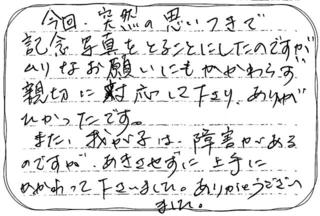 今回、突然の思いつきで
記念写真をとることにしたのですが
ムリなお願いにもかかわらず
親切に対応して下さり、ありが
たかったです。
また、我が子は、障害がある
のですが、あきさせずに上手に
かかわって下さいました。ありがとうござい
ました。